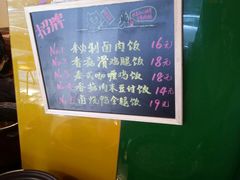 招牌
No.1 秘制卤肉饭 16元
No.2 香菇滑鸡腿饭 18元
No.3 泰式咖喱鸡饭 18元
No.4 香菇肉末豆付饭 14元
No.5 卤烧鸭全腿饭 19元